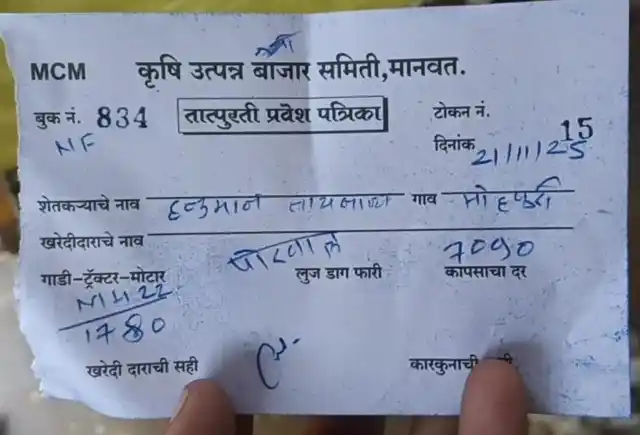 MCM कृषि उत्पन्न बाजार समिती,मानवत.
बुक नं. 834 तात्पुरती प्रवेश पत्रिका टोकन नं. 15
NF दिनांक 21/11/25
शेतकऱ्याचे नाव हनुमान गाव मोहपुरी
खरेदीदाराचे नाव पोरवाल
गाडी-ट्रॅक्टर-मोटार लुज डाग फारी 7090 कापसाचा दर
MH 22
1780
खरेदी दाराची सही कारकुनाची